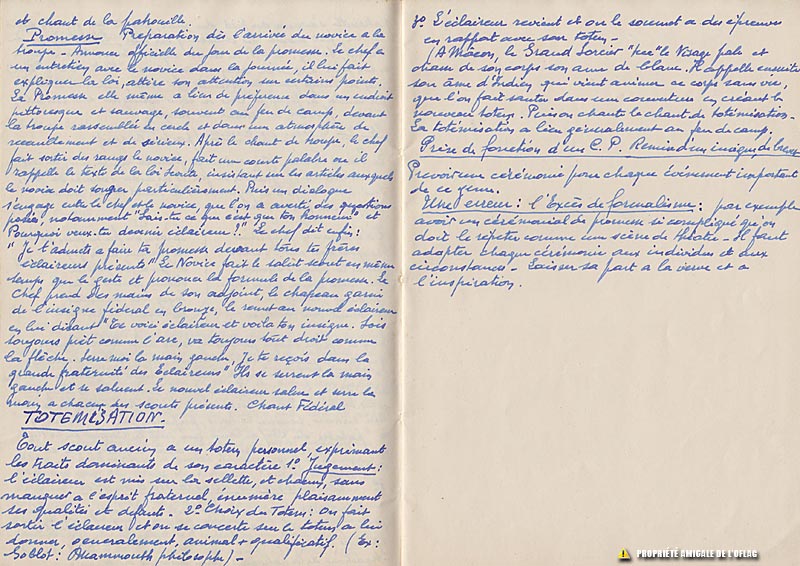 et chant de la patrouille.
Promesse Préparation dès l'arrivée du novice a la
troupe - Annonce officielle du jour de la promesse. Le chef a
un entretien avec le novice dans la journée, il lui fait
expliquer la loi, attire son attention sur certains points.
La Promesse elle même a lieu de préférence dans un endroit
pittoresque et sauvage, souvent au feu de camp, devant
la troupe rassemblée en cercle et dans un atmosphère de
recueillement et de sérieux. Après le chant de troupe, le chef
fait sortir des rangs le novice, fait un courte palabre ou il
rappelle le texte de la loi scoute, insistant sur les articles auxquels
le novice doit songer particulièrement. Puis un dialogue
s'engage entre le chef et le novice, que l'on a averti des questions
posées, notamment "Sais-tu ce que c'est que ton honneur" et
Pourquoi veux-tu devenir éclaireur?" Le chef dit enfin:
"Je t'admets a faire ta promesse devant tous tes frères
éclaireurs présents". Le Novice fait le salut scout en même
temps que le geste et prononce la formule de la promesse. Le
Chef prend des mains de son adjoint, le chapeau garni
de l'insigne fédéral en bronze, le remet au nouvel éclaireur
en lui disant "Te voici éclaireur et voila ton insigne. Sois
toujours prêt comme l'arc, va toujours tout droit comme
la flèche. Serre moi la main gauche, Je te reçois dans la
grande fraternité des Eclaireurs" Ils se serrent la main
gauche et se saluent. Le nouvel éclaireur salue et serre la
main a chacun des scouts présents. Chant Fédéral
TOTEMISATION.
Tout scout ancien a un totem personnel, exprimant
les traits dominants de son caractère 1º Jugement:
l'éclaireur est mis sur la sellette, et chacun, sans
manquer a l'esprit fraternel, énumère plaisamment
ses qualités et défauts. 2º Choix du Totem: On fait
sortir l'éclaireur et on se concerte sur le totem a lui
donner, généralement, animal + qualificatif. (Ex:
Goblot: Mammouth philosophe) -
3º L'éclaireur revient et on le soumet a des épreuves
en rapport avec son totem -
(A Mâcon, le Grand Sorcier "tue" le Visage pale et
chasse de son corps son ame de blanc. Il appelle ensuite
son âme d'Indien qui vient animer ce corps sans vie,
que l'on fait sauter dans une couverture en criant le
nouveau totem. Puis on chante le chant de totémisation.
La totémisation a lieu généralement au feu de camp.
Prise de fonction d'un C.P. Remise d'un insigne, de brevet
Prévoir une cérémonie pour chaque évènement important
de ce genre.
Une erreur: l'Excès de formalisme: par exemple
avoir un cérémonial de promesse si compliqué qu'on
doit le répéter comme une scène de théatre - Il faut
adapter chaque cérémonie aux individus et aux
circonstances - Laisser sa part a la verve et a
l'inspiration.
PROPRIÉTÉ AMICALE DE L'OFLAG